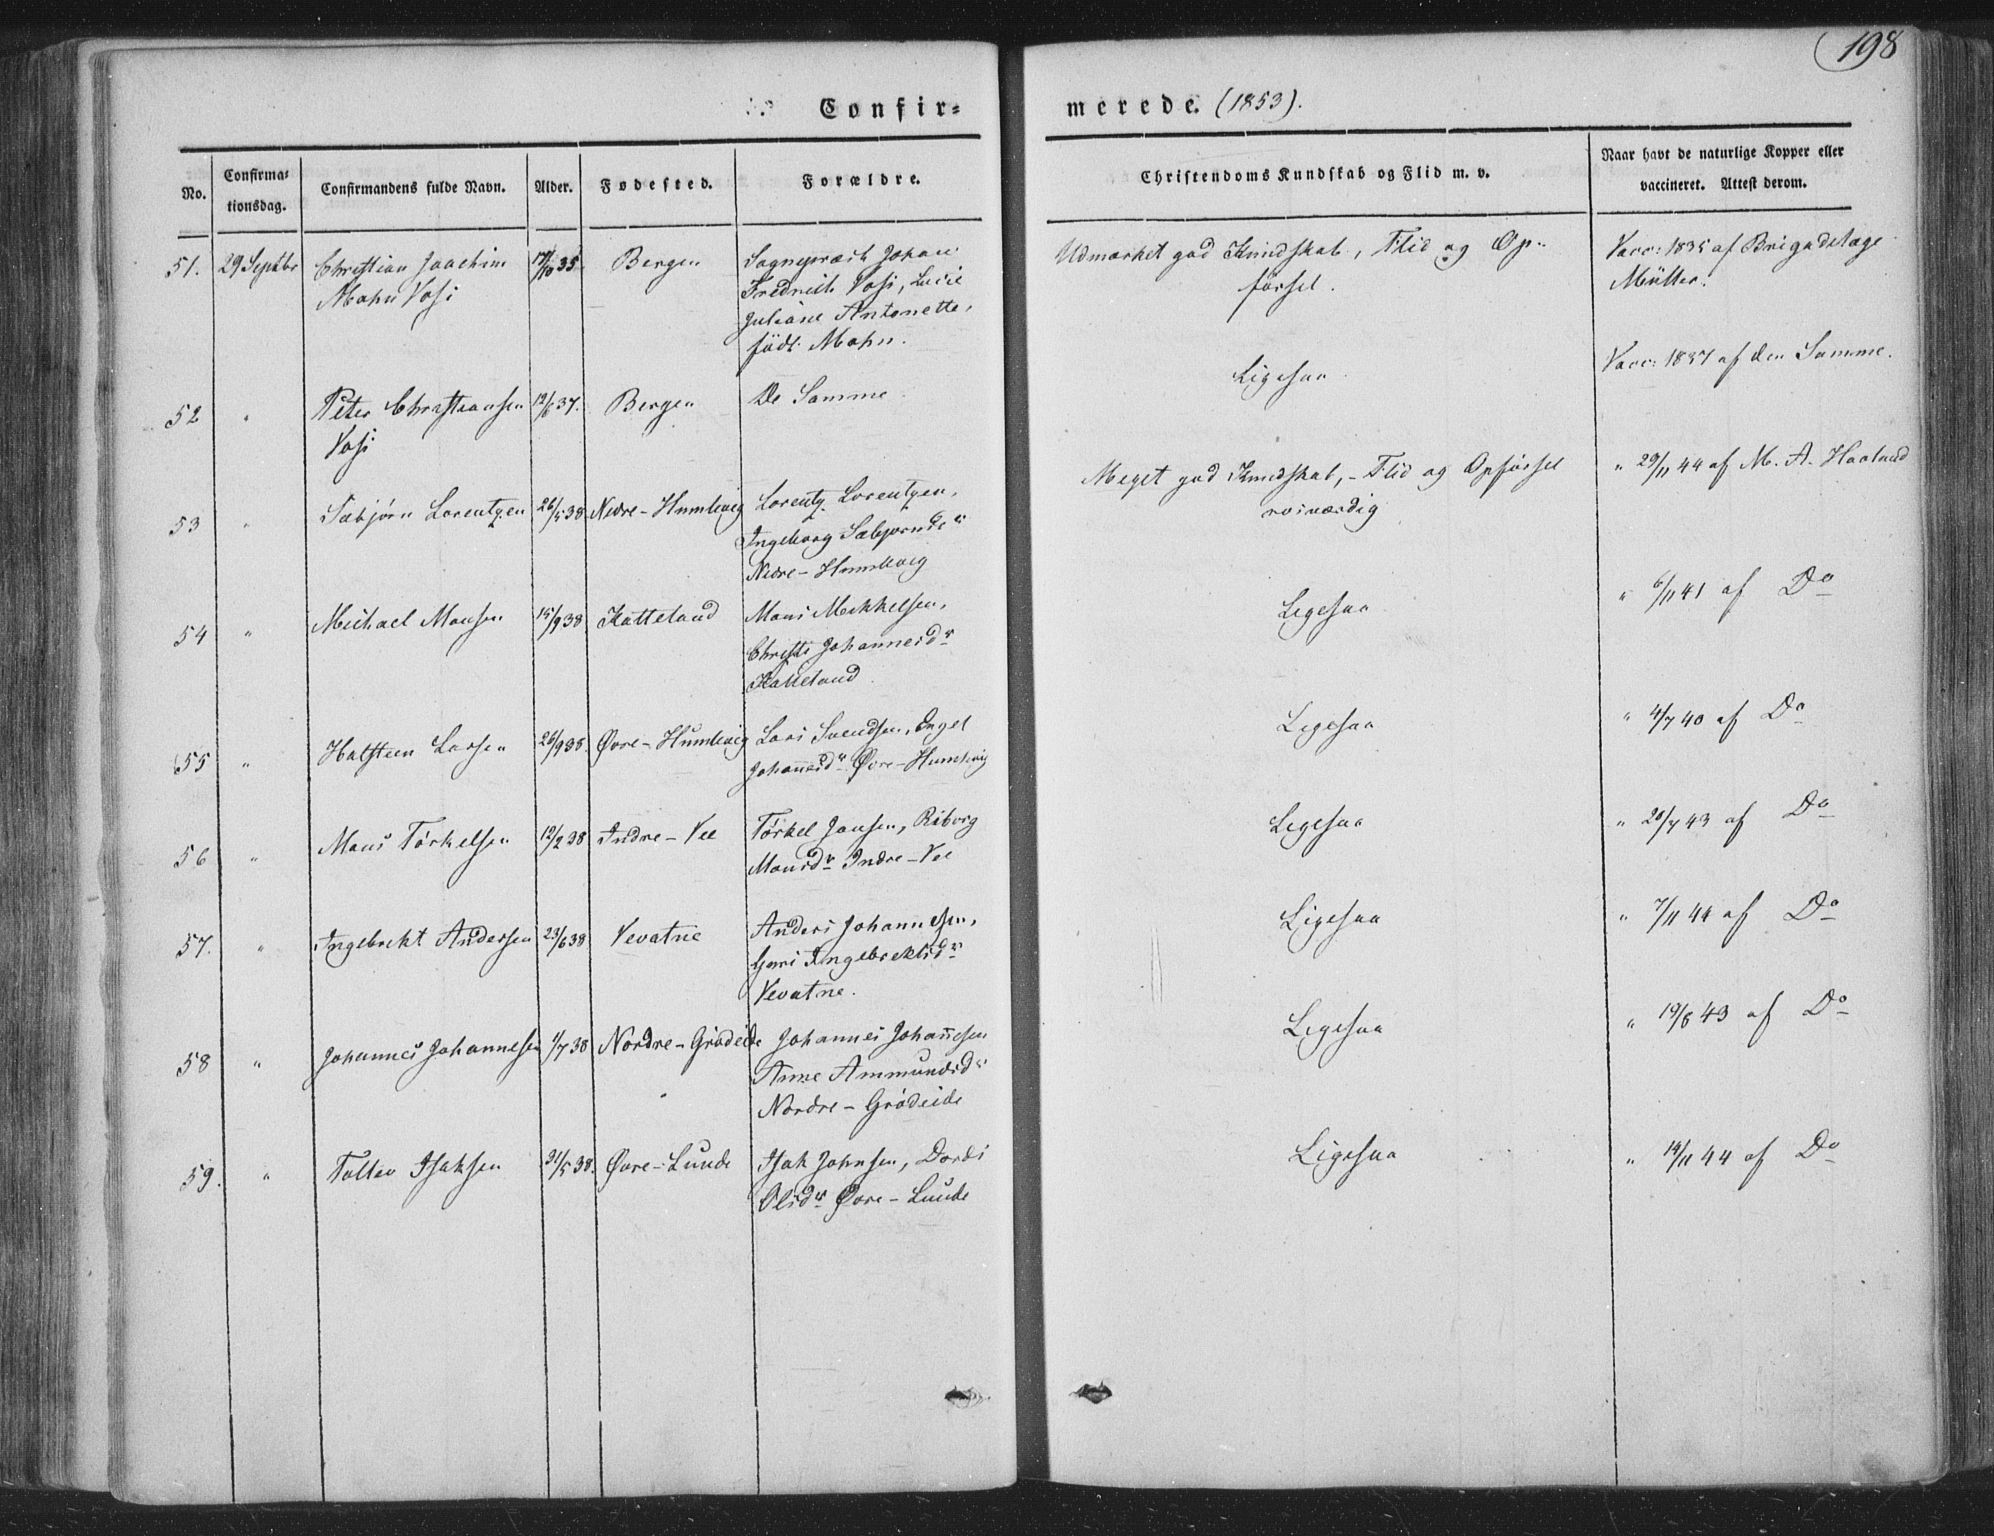 198
Confir-
merede. (1853).
No.
Confirma-
tionsdag.
Confirmandens fulde Navn.
Alder.
Fødested.
Forældre.
Christendoms Kundskab og Flid m. v.
Naar havt de naturlige Kopper eller
vaccineret. Attest derom.
51. 29 Septbr Christian Joachim 35 Bergen Sognepræst Johan
Mohn Vosi Fredrich Vosi, Lucie
Juliane Antonette,
född. Mohn.
Udmærket god Kundskab, Flid og Op-
førsel.
Vacc: 1835 af Brigadelæge
Müller.
52 " Peter Christiansen 12/6 37. Bergen De Samme
Vosi
Ligesaa
Vacc: 1837 af den Samme.
53 " Sæbjørn Lorentzen 26/5 38 Nedre-Humlevig Lorentz Lorentzen,
Ingeborg Sæbjørnsdr
Nedre-Humlevig
Meget god Kundskab, - Flid og Opførsel
rosværdig
" 29/11 44 af M. A. Haaland
54 " Michael Monsen 15/9 38 Katteland Mons Mekkelsen,
Christi Johannesdr
Katteland.
Ligesaa
" 6/11 41 af Do
55 " Halsteen Larsen 26/9 38. Øvre-Humlevig Lars Svendsen, Engel
Johannesdr Øvre-Humlevig
Ligesaa
" 4/7 40 af Do
56 " Mons Tørkelsen 12/2 38 Indre-Vee Tørkel Jansen, Riborg
Monsdr Indre-Vee
Ligesaa
" 20/7 43 af Do
57. " Ingebrekt Andersen 23/6 38 Vevatne Anders Johannesen,
Guri Ingebrektsdr
Vevatne.
Ligesaa
" 7/11 44 af Do
58 " Johannes Johannesen 1/7 38 Nordre-Grødeide Johannes Johannesen
Anne Ammundsdr
Nordre-Grødeide
Ligesaa
" 19/8 43 af Do
59. " Tollev Isaksen 31/5 38. Øvre-Lunde Isak Johnsen, Dordi
Olsdr Øvre-Lunde
Ligesaa
" 14/11 44 af Do